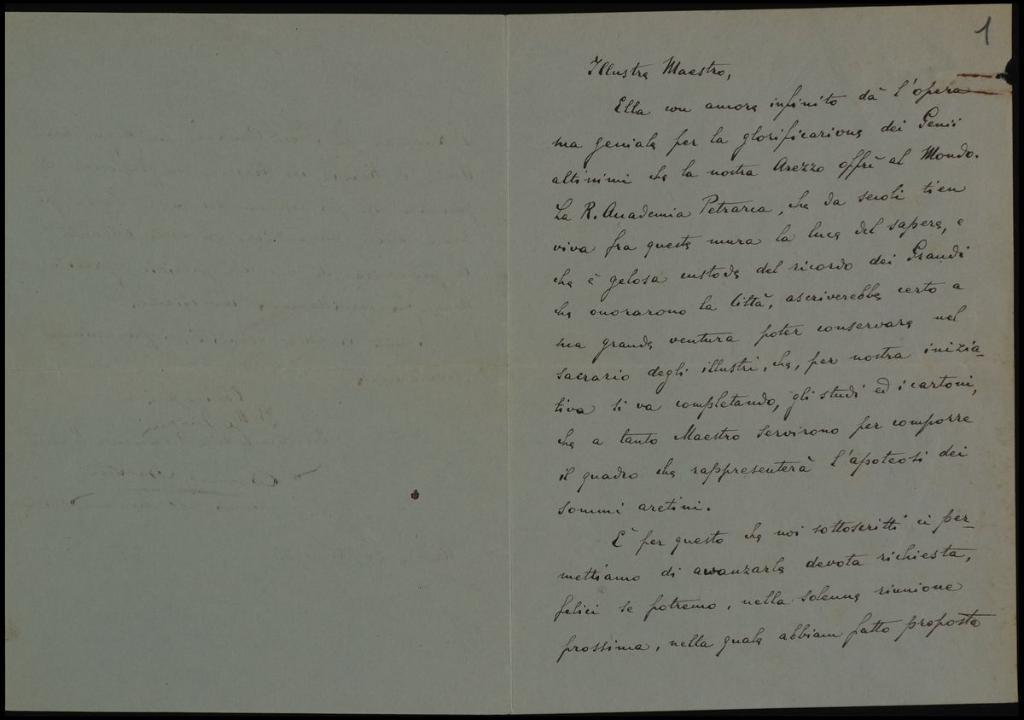 1
Illustre Maestro,
Ella con amore infinito dà l'opera
sua geniale per la glorificazione dei Genii
altissimi che la nostra Arezzo offrì al Mondo.
La R. Accademia Petrarca, che da secoli tien
viva fra queste mura la luce del sapere, e
che è gelosa custode del ricordo dei Grandi
che onorarono la Città, ascriverebbe certo a
sua grande ventura poter conservare nel
sacrario degli illustri, che, per nostra inizia-
tiva si va completando, gli studi ed i cartoni,
che a tanto Maestro servirono per comporre
il quadro che rappresenterà l'apoteosi dei
sommi aretini.
È per questo che noi sottoscritti ci per-
mettiamo di avanzarle devota richiesta,
felici se potremo, nella solenne riunione
prossima, nella quale abbiam fatto proposta